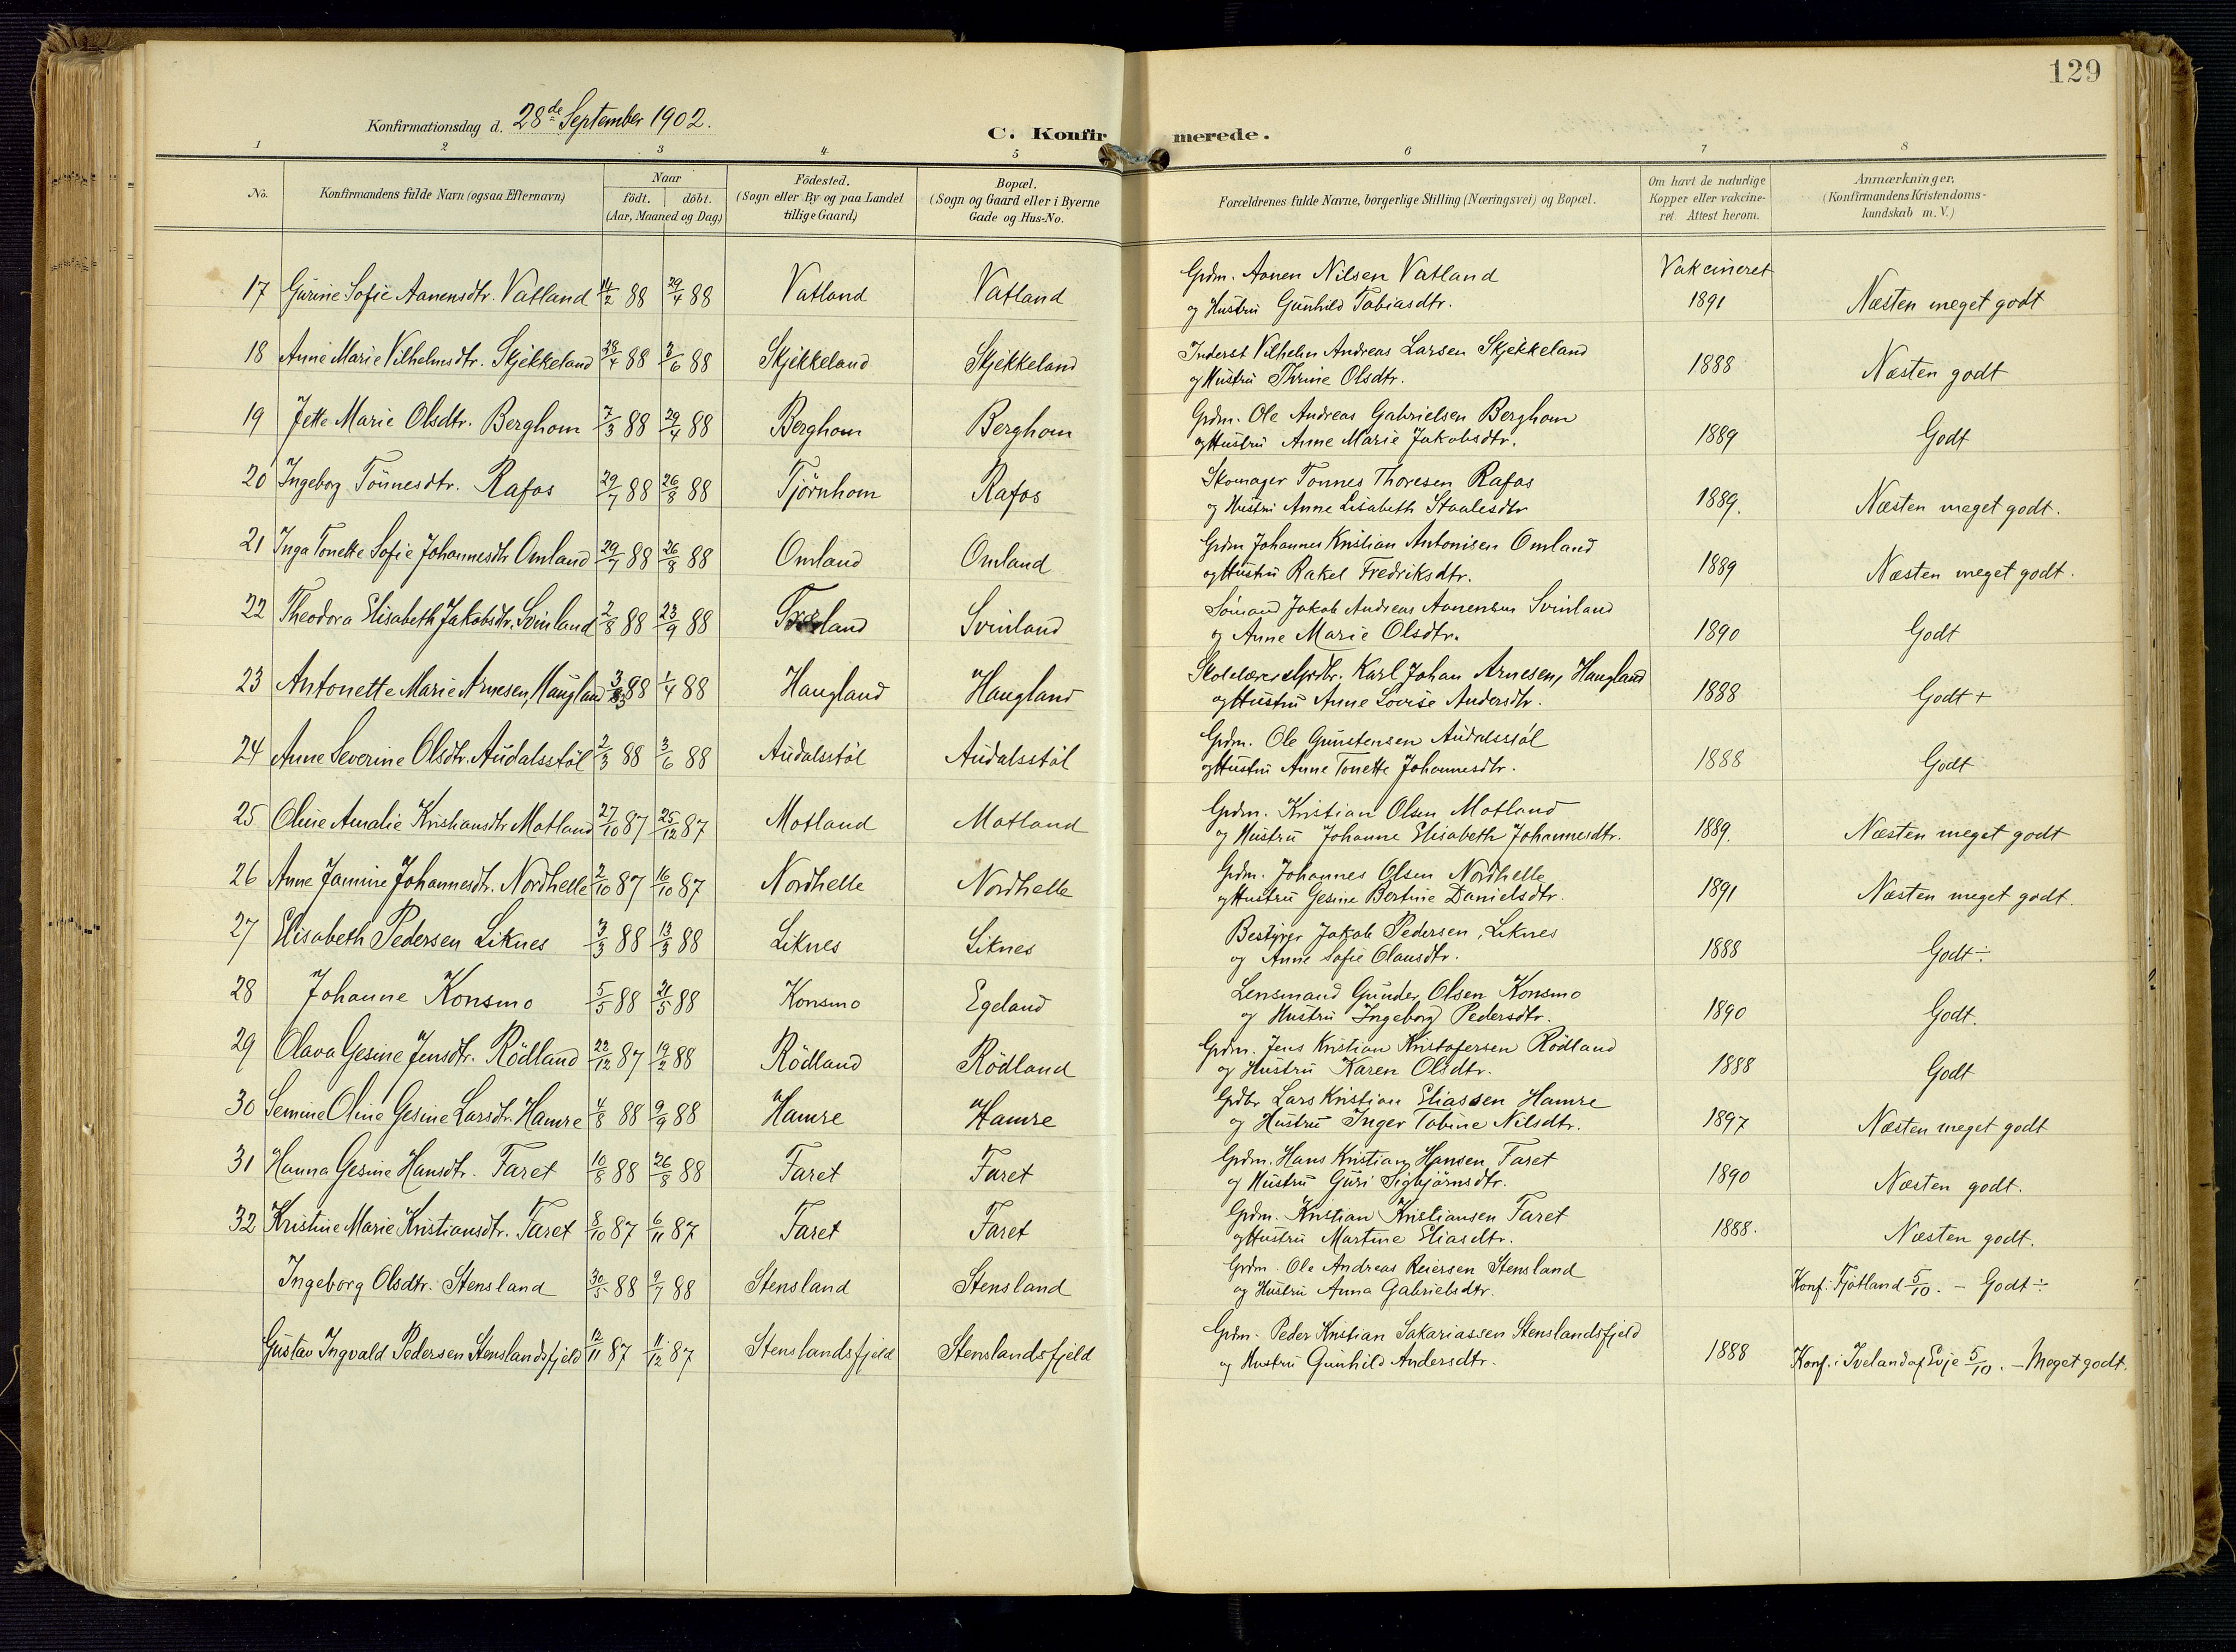 129
Konfirmationsdag d. 28de September 1902.
C. Konfirmerede.
1 2 3 4 5 6 7 8
No. Konfirmandens fulde Navn (ogsaa Efternavn) Naar født. døbt. (Aar, Maaned og Dag) Födested. (Sogn eller By og paa Landet tillige Gaard) Bopæl. (Sogn og Gaard eller i Byerne Gade og Hus-No. Forældrenes fulde Navne, borgerlige Stilling (Næringsvei) og Bopæl. Om havt de naturlige Kopper eller vakcineret. Attest herom. Anmærkninger. (Konfirmandens Kristendomskundskab m. V.)
17 Gurine Sofie Aanensdtr. Vatland 14/2 88 29/4 88 Vatland Vatland Grdm. Aanen Nilsen Vatland Vakcineret
og Hustru Gunhild Tobiasdtr. 1891 Næsten meget godt
18 Anne Marie Vilhelmsdtr. Skjekkeland 28/4 88 3/6 88 Skjekkeland Skjekkeland Inderst Vilhelm Andreas Larsen Skjekkeland
og Hustru Thrine Olsdtr. 1888 Næsten godt
19 Jette Marie Olsdtr. Berghom 7/3 88 29/4 88 Berghom Berghom Grdm. Ole Andreas Gabrielsen Berghom
og Hustru Anne Marie Jakobsdtr. 1889 Godt
20 Ingeborg Tönnesdtr. Rafos 29/7 88 26/8 88 Tjörnhom Rafos Skomager Tonnes Thoresen Rafos
og Hustru Anne Lisabeth Staalesdtr 1889. Næsten meget godt.
21 Inga Tonette Sofie Johannesdtr Omland 29/7 88 26/8 88 Omland Omland Grdm Johannes Kristian Antonisen Omland
og Hustru Rakel Fredriksdtr. 1889 Næsten meget godt.
22 Theodora Elisabeth Jakobsdtr. Svinland 2/8 88 23/9 88 Svinland Sömand Jakob Andreas Aanensen Svinland
og Anne Marie Olsdtr. 1890 Godt
23 Antonette Marie Arnesen, Haugland 3/3 88 1/4 88 Haugland Haugland Karl Johan Arnesen, Haugland
og Hustru Anne Lovise Andersdtr. 1888 Godt +
24 Anne Severine Olsdtr. Audalsstöl 2/3 88 3/6 88 Audalsstöl Audalsstöl Grdm. Ole Gunstensen Audalsstöl
og Hustru Anne Tonette Johannesdtr. 1888 Godt
25 Oline Amalie Kristiansdtr Motland 27/10 87 25/12 87 Motland Motland Grdm. Kristian Olsen Motland
og Hustru Johanne Elisabeth Johannesdtr. 1889. Næsten meget godt
26 Anne Jamine Johannesdtr. Nordhelle 2/10 87 16/10 87 Nordhelle Nordhelle Grdm. Johannes Olsen Nordhelle
og Hustru Gesine Bertine Danielsdtr. 1891 Næsten meget godt.
27 Elisabeth Pedersen Liknes 3/3 88 13/3 88 Liknes Liknes Bestyrer Jakob Pedersen, Liknes
og Anne Sofie Olausdtr. 1888 Godt ÷
28 Johanne Konsmo 5/5 88 21/5 88 Konsmo Egeland Lensmand Gunder Olsen Konsmo
og Hustru Ingeborg Pedersdtr. 1890 Godt.
29 Olava Gesine Jensdtr. Rödland 22/12 87 19/2 88 Rödland Rödland Grdm. Jens Kristian Kristofersen Rödland
og Hustru Karen Olsdtr. 1888 Godt
30 Semine Oline Gesine Larsdtr. Hamre 4/8 88 9/9 88 Hamre Hamre Grdbr Lars Kristian Eliassen Hamre
og Hustru Inger Tobine Nilsdtr. 1897 Næsten meget godt
31 Hanna Gesine Hansdtr. Faret 10/8 88 26/8 88 Faret Faret Grdm. Hans Kristian Hansen Faret
og Hustru Guri Sigbjörnsdtr. 1890 Næsten godt.
32 Kristine Marie Kristiansdtr. Faret 8/10 87 6/11 87 Faret Faret Grdm. Kristian Kristiansen Faret
og Hustru Martine Eliasdtr. 1888. Næsten godt.
Ingeborg Olsdtr. Stensland 30/5 88 9/7 88 Stensland Stensland Grdm. Ole Andreas Reiersen Stensland
og Hustru Anna Gabrielsdtr. Konf. i Fjotland 5/10. – Godt ÷
Gustav Ingvald Pedersen Stenslandsfjeld 12/11 87 11/12 87 Stenslandsfjeld Stenslandsfjeld Grdm. Peder Kristian Sakariassen Stenslandsfjeld
og Hustru Gunhild Andersdtr. 1888 Konf. i Iveland af Evje 5/10. – Meget godt.